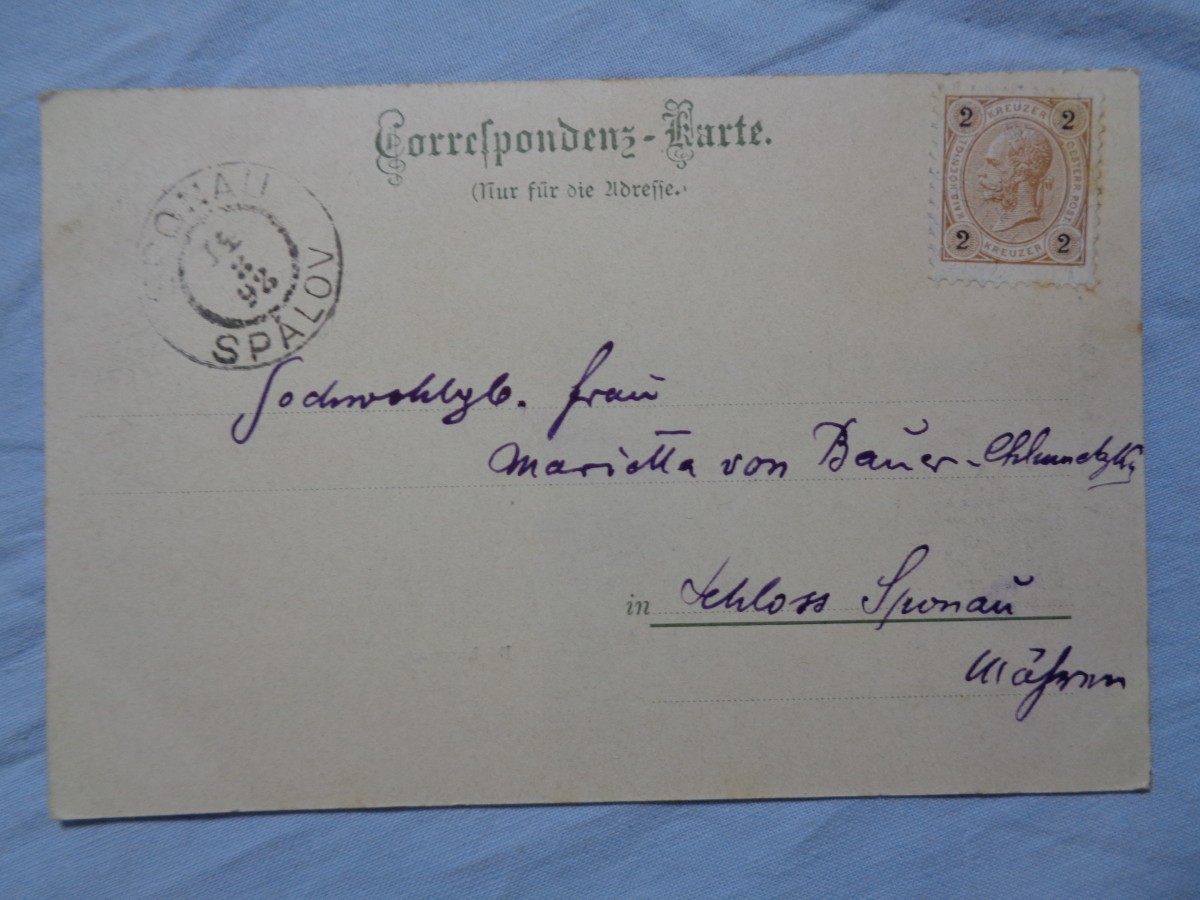 Correspondenz-Karte.
(Nur für die Adresse.)
2 KREUZER 2
KAIS. KOENIGL. OESTERR. POST
2 KREUZER 2
SPONAU
14
98
SPÁLOV
Hochwohlgb. Frau
Marietta von Bauer-Chlumetzky
in Schloss Sponau
Mähren